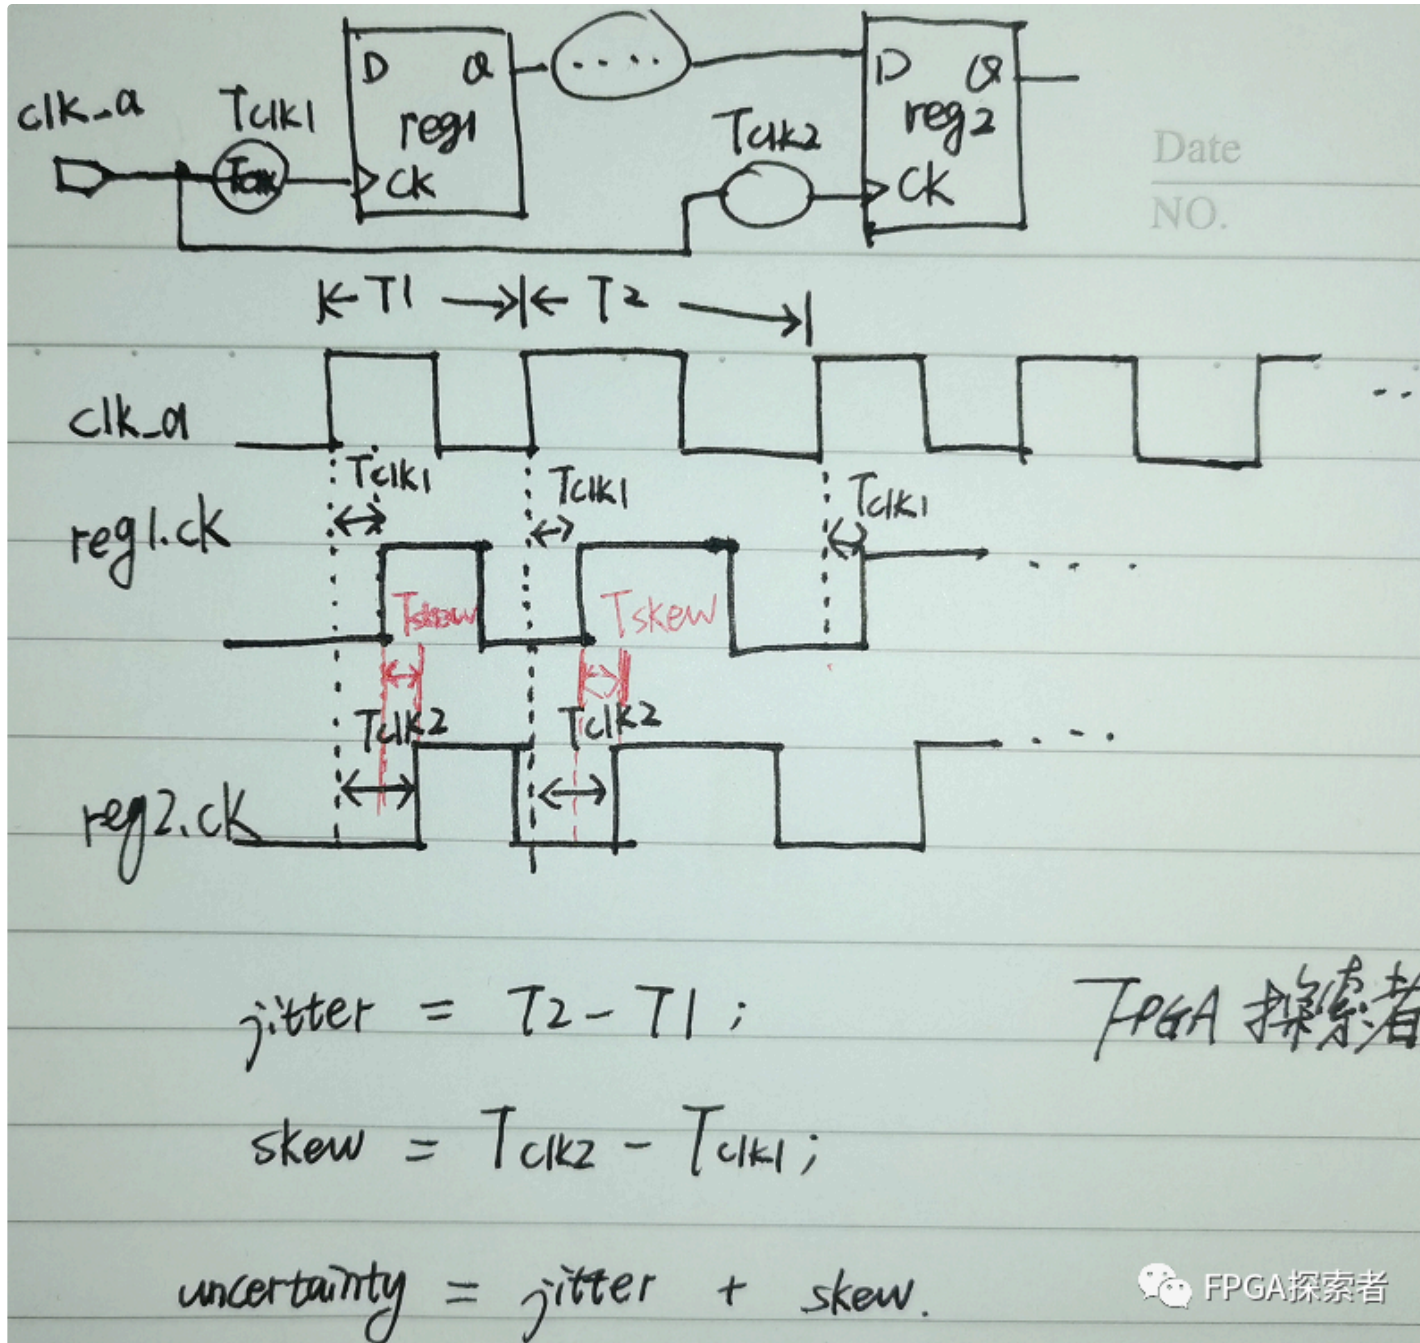 clk_a Tclk1 D Q reg1 CK .... Tclk2 D Q reg2 CK
Date
NO.
T1 T2
clk_a
Tclk1 Tclk1 Tclk1
reg1.ck
Tskew Tskew
Tclk2 Tclk2
reg2.ck
jitter = T2 - T1 ;
FPGA 探索者
skew = Tclk2 - Tclk1 ;
uncertainty = jitter + skew.
FPGA探索者